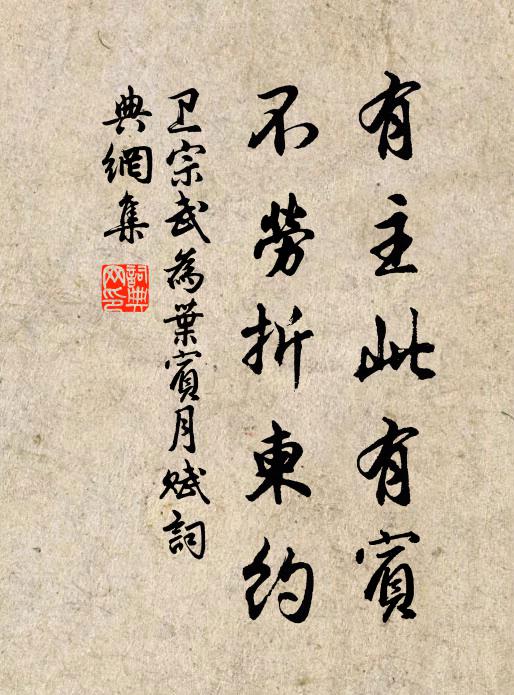 有主此有賓
不勞折東約
卫宗武為葉賓月賦詞
典網集
詞典网印